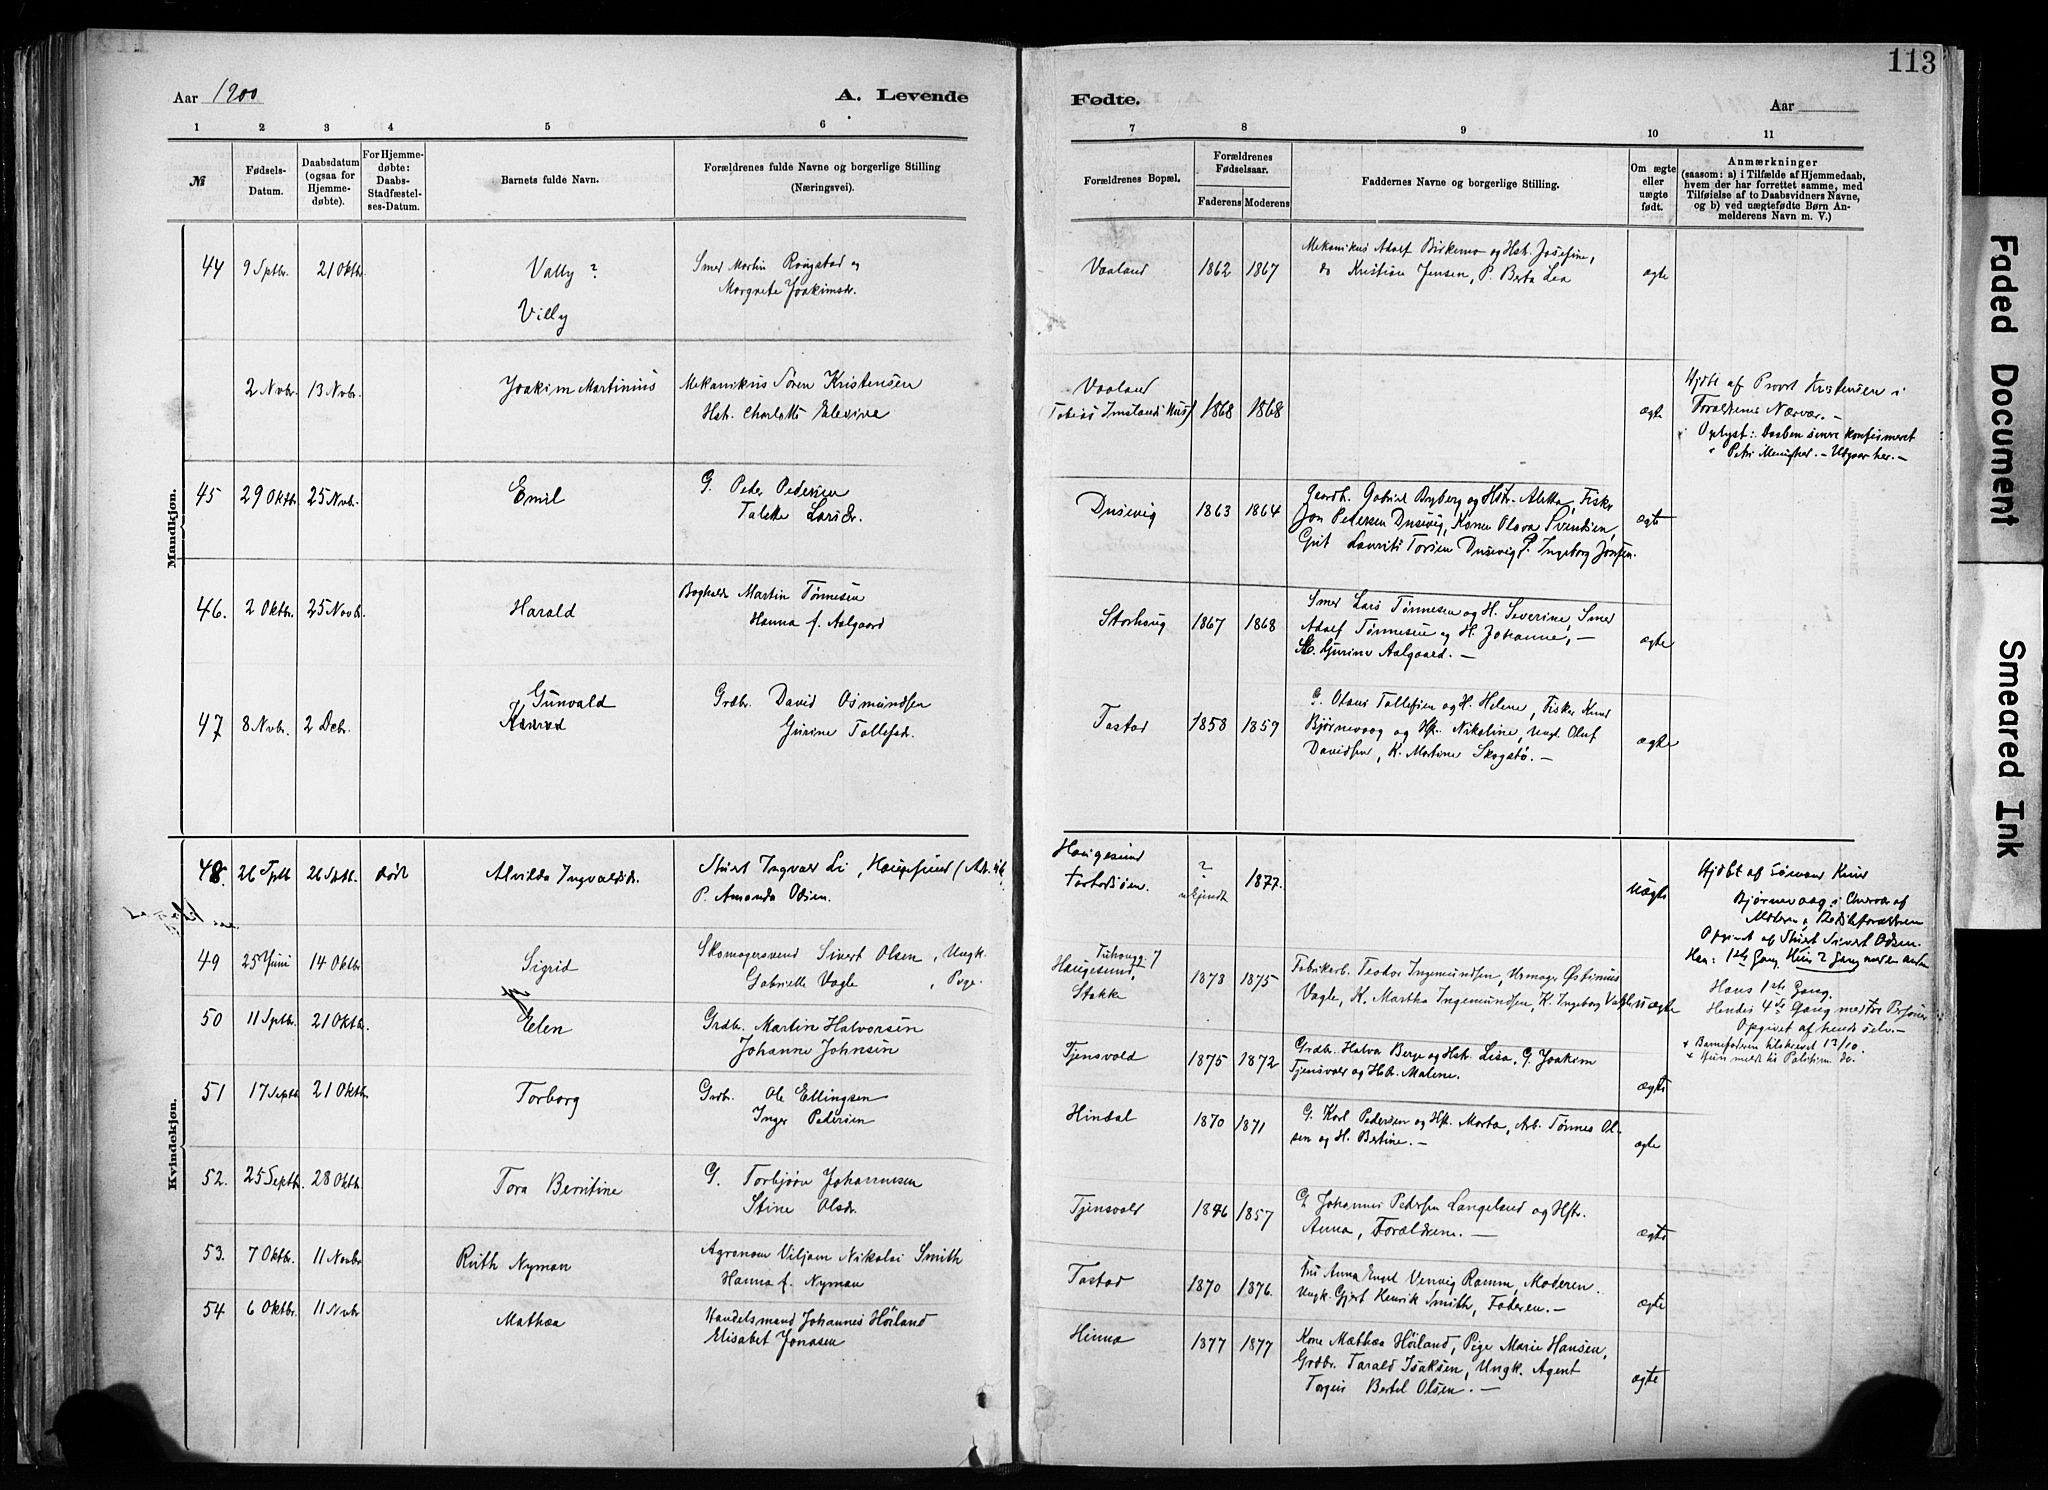 113
Aar 1900
A. Levende
Fødte.
Aar
1 2 3 4 5 6 7 8 9 10 11
№
Fødsels-
Datum.
Daabsdatum
(ogsaa for
Hjemme-
døbte).
For Hjemme-
døbte:
Daabs-
Stadfæstel-
ses-Datum.
Barnets fulde Navn.
Forældrenes fulde Navne og borgerlige Stilling
(Næringsvei).
Forældrenes Bopæl.
Forældrenes
Fødselsaar.
Faderens Moderens
Faddernes Navne og borgerlige Stilling.
Om ægte
eller
uægte
født.
Anmærkninger
(saasom: a) i Tilfælde af Hjemmedaab,
hvem der har forrettet samme, med
Tilføielse af to Daabsvidners Navne,
og b) ved uægtefødte Børn An-
melderens Navn m. V.)
Mandkjøn.
44 9 Sptbr. 21 Oktbr. Vally ?
Villy
Smed Martin Rongstad og
Margrete Joakimsdr.
Vaaland 1862 1867
Mekanikus Adolf Birkemo og Hst. Josefine,
do Kristian Jensen, P. Berta Lea
ægte
2 Nvbr. 13 Nvbr. Joakim Martinius
Mekanikus Søren Kristensen
Hst. Charlotte Elevine
Vaaland
Tobias Imslands Hus 1868 1868
ægte
Hjdbt af Provst Kristensen i
Forældrenes Nærvær. —
Oplyst: Daaben senere konfirmeret
i Petri Menighed. — Udgaar her. —
45 29 Oktbr. 25 Nvbr. Emil
G. Peder Pedersen
Talette Larsdr.
Dusevig 1863 1864
Gaardb. Gabriel Byberg og Hst. Aletta, Fisker
Jon Petersen Dusevig, Konen Olava Svendsen,
Gut Laurits Torsen Dusevig, P. Ingeborg Jonsen.
ægte
46. 2 Oktbr. 25 Novbr. Harald
Boghold. Martin Tønnesen
Hanna f. Aalgaard
Storhaug 1867 1868
Smed Lars Tønnesen og H. Severine, Smed
Adolf Tønnesen og H. Johanne, —
Gurine Aalgaard. —
ægte
47 8 Nvbr. 2 Debr. Gunvald
Konrad
Grdbr. David Osmundsen
Gurine Tollefsdr.
Tastad 1858 1859
G. Otaus Tollefsen og H. Helene, Fisker Knud
Bjørnevaag og Hst. Nikoline, Ungk. Oluf
Davidsen, K. Martine Skogstø. —
ægte
Kvindekjøn.
48. 26 Sptb 26 Sptb. død Alvilda Ingvaldsdr.
Stuert Ingvald Li, Haugesund
P. Amanda Olsen.
Haugesund
? ukjendt 1877.
uægte
Hjdbt af Sømand Knud
Bjørnevaag i Overvær af
Moderen & Bedsteforældrene
Opgivet af Stuert Sivert Olsen.
Han: 1ste Gang. Hun 2 Gang med en anden
49 25 Juni 14 Oktbr Sigrid
Skomagersvend Sivert Olsen, Ungk.
Gabrielle Vagle, Pige.
Haugesund,
Stokke 1878 1875
Fabrikarb. Teodor Ingemundsen, Urmager Østinius
Vagle, K. Martha Ingemundsen, K. Ingeborg Vagle
uægte
Hans 1ste Gang.
Hendes 4de Gang med tre Personer
Opgivet af hende selv. —
50 11 Sptbr. 21 Oktbr. Elen
Grdbr. Martin Halvorsen
Johanne Johnsen
Tjensvold 1875 1872
Grdbr. Halvor Berge og Hst. Lisa, G. Joakim
Tjensvold og Hst. Malene.
ægte
+ Barnefaderen tilskrevet 12/10.
51 17 Septbr 21 Oktbr Torborg
Grdbr. Ole Ellingsen
Inger Pedersen
Hindal 1870 1871
G. Karl Pedersen og Hst. Marta, Arb. Tønnes Ol-
sen og H. Bertine. —
ægte
52. 25 Septbr. 28 Oktbr. Tora Berntine
G. Torbjørn Johannesen
Stine Olsdr.
Tjensvold 1846 1857
G. Johannes Pedersen Langeland og Hst.
Anna, Forældrene. —
ægte
53. 7 Oktbr. 11 Novbr Ruth Nyman
Agronom Viljam Nikolai Smith
Hanna f. Nyman
Tastad 1870 1876.
Fru Anna Engel Venvig Ramm, Moderen.
Ungk. Gjert Henrik Smith, Faderen. —
ægte
54 6 Oktbr. 11 Nvbr Mathea
Handelsmand Johannes Höiland
Elisabet Jonasen
Hinna 1877 1877
Kone Mathea Höiland, Pige Marie Hansen,
Grdbr. Tarald Isaksen, Ungk. Agent
Torgeis Bertel Olsen. —
ægte
Faded Document
Smeared Ink